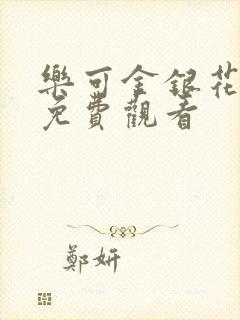 樂可金銀花
免費觀看
鄭妍